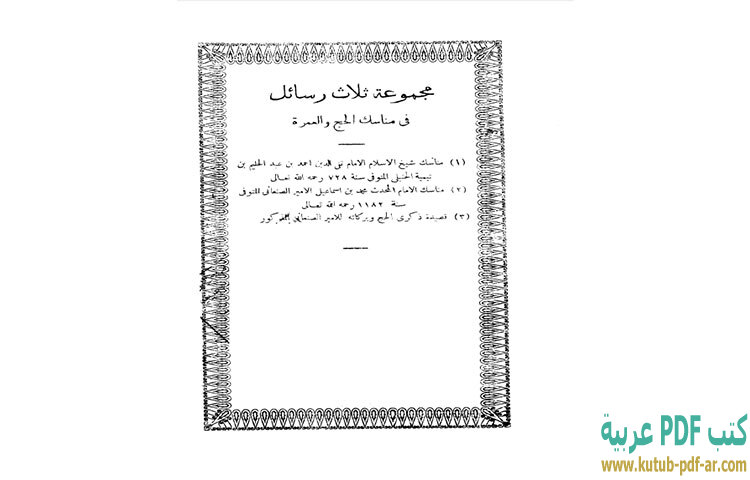 مجموعة ثلاث رسائل
فى مناسك الحج والعمرة
(١) مناسك شيخ الاسلام الامام تقى الدين احمد بن عبد الحليم بن
تيمية الحنبلى المتوفى سنة ٧٢٨ رحمه الله تعالى
(٢) مناسك الامام المحدث محمد بن اسماعيل الامير الصنعانى المتوفى
سنة ١١٨٢ رحمه الله تعالى
(٣) قصيدة ذكرى الحج وبركاته للامير الصنعانى المذكور
كتب PDF عربية
www.kutub-pdf-ar.com